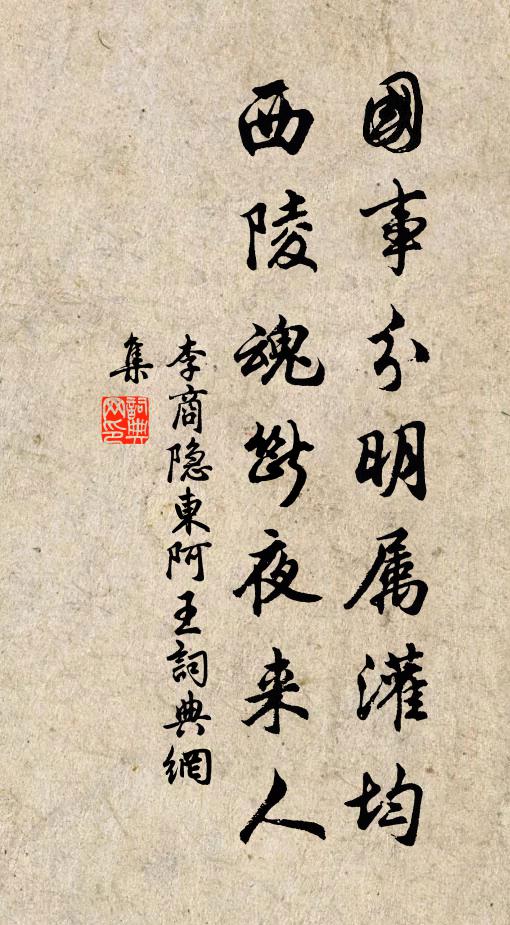 國事分明属灌均
西陵魂斷夜来人
李商隐東阿王詞典網
集
詞典網印